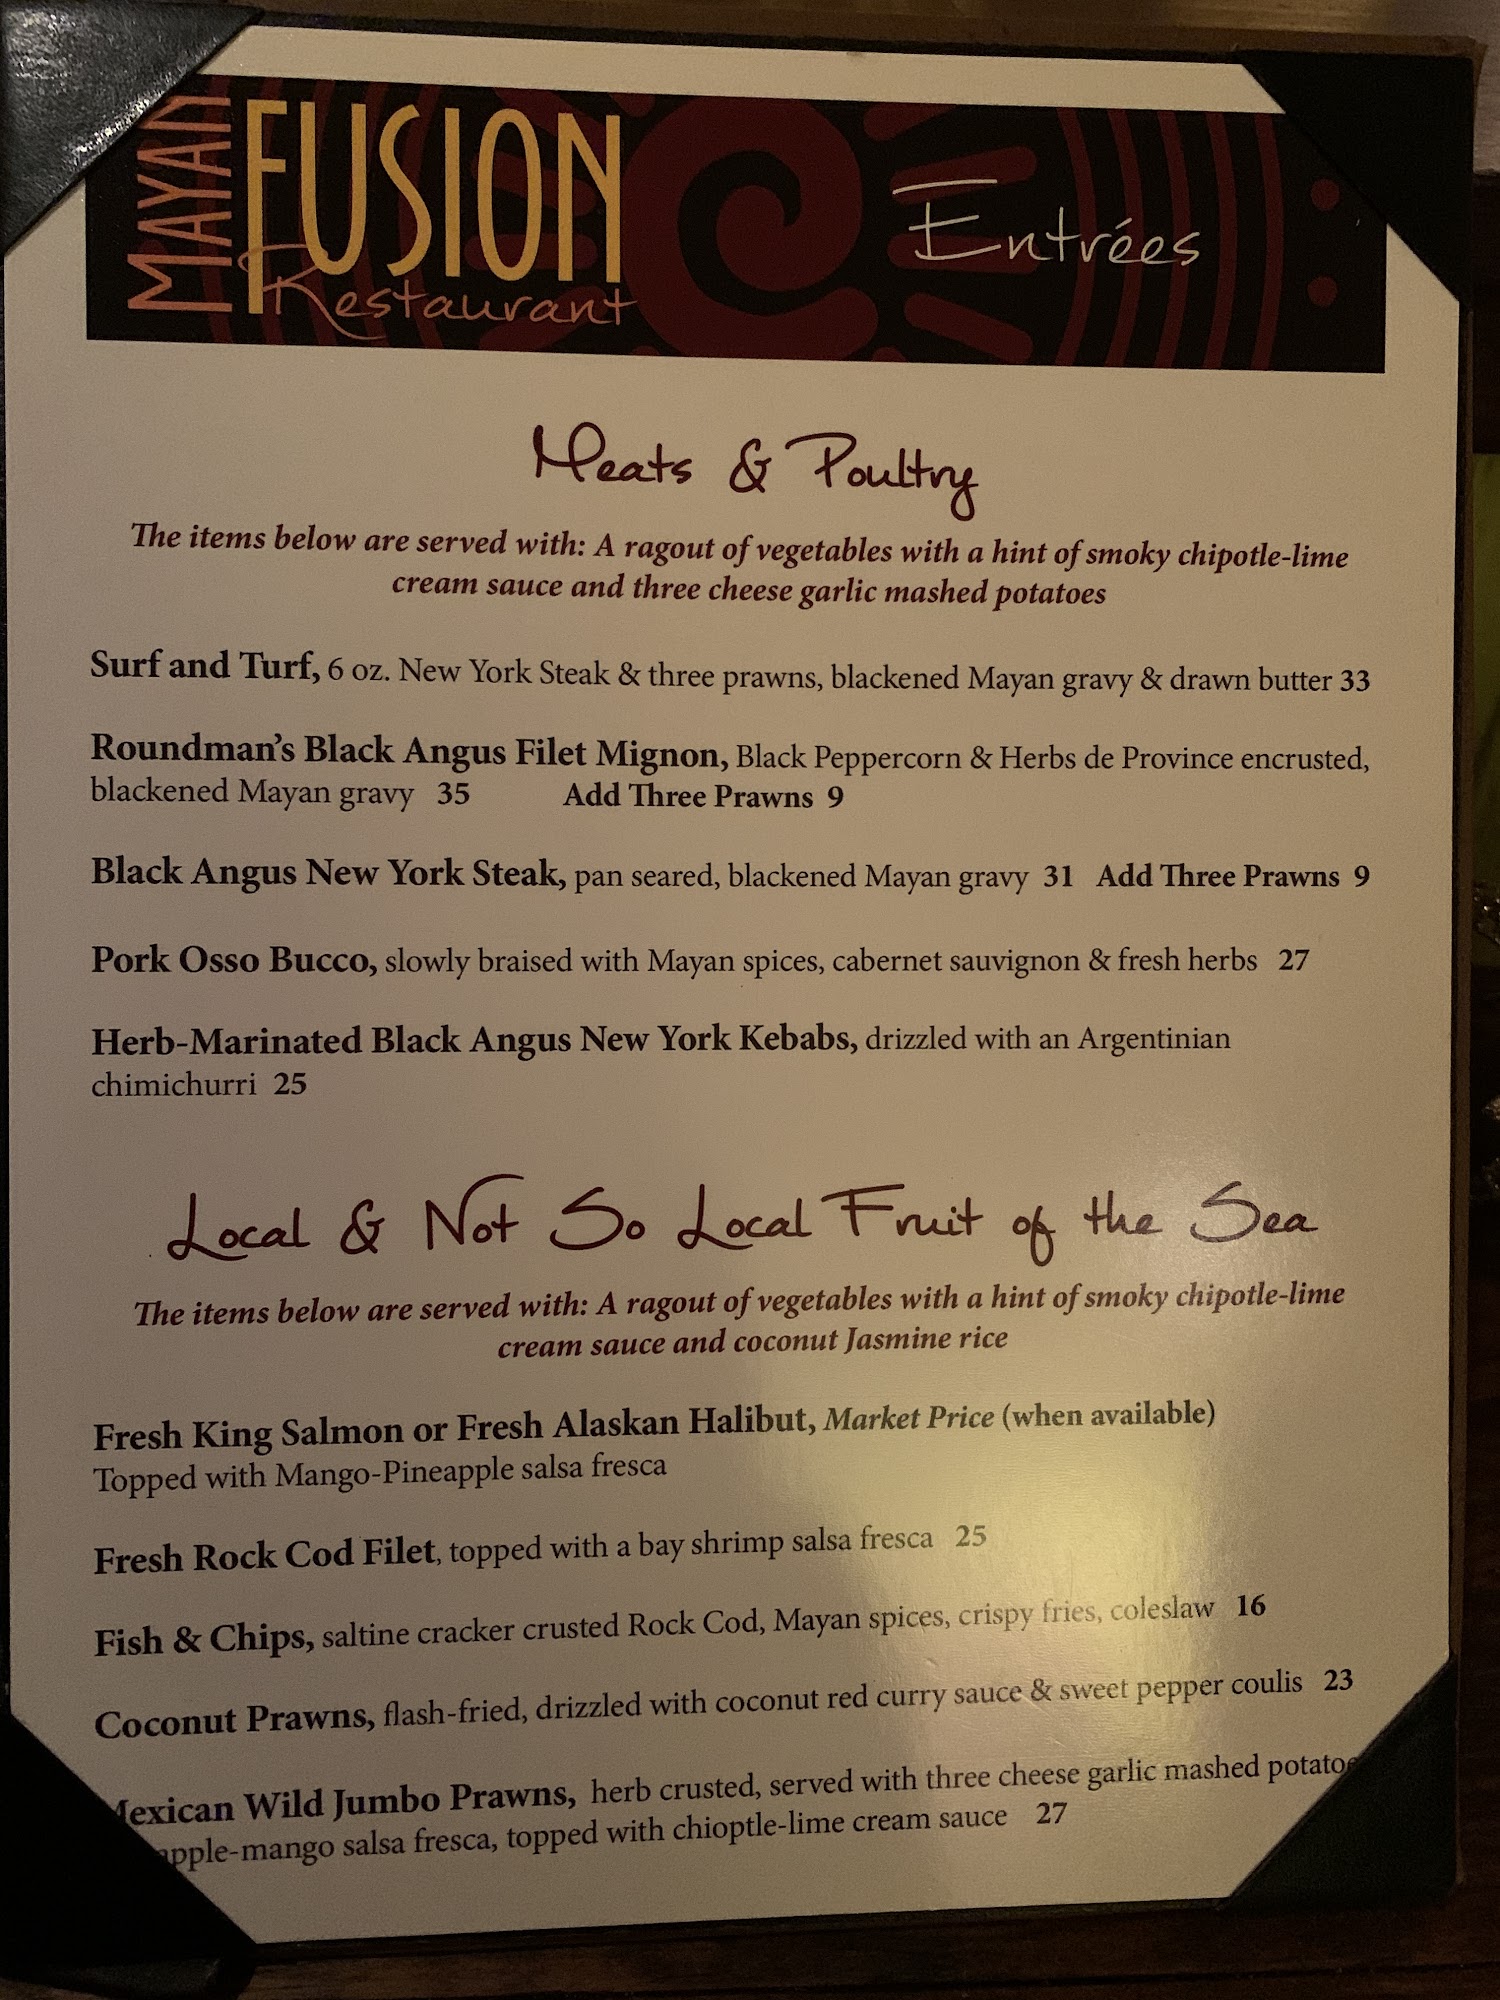 MAYAN
FUSION
Restaurant
Entrées
Meats & Poultry
The items below are served with: A ragout of vegetables with a hint of smoky chipotle-lime
cream sauce and three cheese garlic mashed potatoes
Surf and Turf, 6 oz. New York Steak & three prawns, blackened Mayan gravy & drawn butter 33
Roundman's Black Angus Filet Mignon, Black Peppercorn & Herbs de Province encrusted,
blackened Mayan gravy 35 Add Three Prawns 9
Black Angus New York Steak, pan seared, blackened Mayan gravy 31 Add Three Prawns 9
Pork Osso Bucco, slowly braised with Mayan spices, cabernet sauvignon & fresh herbs 27
Herb-Marinated Black Angus New York Kebabs, drizzled with an Argentinian
chimichurri 25
Local & Not So Local Fruit of the Sea
The items below are served with: A ragout of vegetables with a hint of smoky chipotle-lime
cream sauce and coconut Jasmine rice
Fresh King Salmon or Fresh Alaskan Halibut, Market Price (when available)
Topped with Mango-Pineapple salsa fresca
Fresh Rock Cod Filet, topped with a bay shrimp salsa fresca 25
Fish & Chips, saltine cracker crusted Rock Cod, Mayan spices, crispy fries, coleslaw 16
Coconut Prawns, flash-fried, drizzled with coconut red curry sauce & sweet pepper coulis 23
Mexican Wild Jumbo Prawns, herb crusted, served with three cheese garlic mashed
salsa fresca, topped with chioptle-lime cream sauce 27